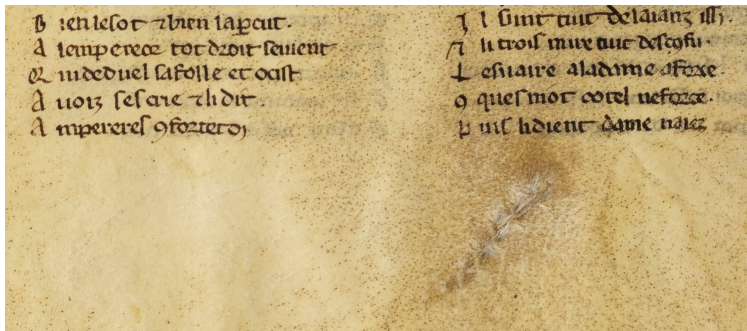 B ien le sot ⁊ bien lapcut.
A lempereor tot droit sen vient
Q ui de duel safolle et ocist
A voiz sescrie ⁊ li dit
A mpereres ꝯfortetoi
I l sunt tuit de laianz issi
⁊ li troi mire tuit descofi.
L esuaire a la dame a force.
O ques mot cotel ne force.
P uis li dient dame naiez